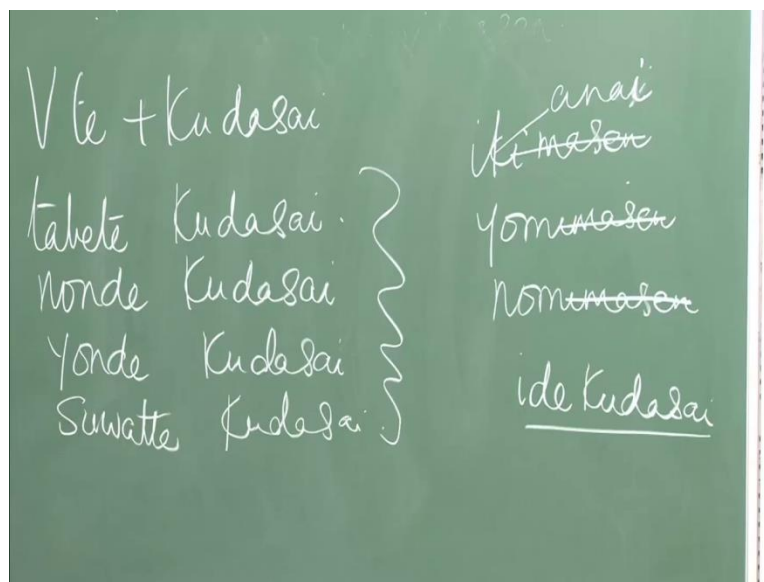 V te + Kudasai
tabete Kudasai.
nonde Kudasai
yonde Kudasai
Suwatte Kudasai.
anai
ikimasen
yomimasen
nomimasen
ide Kudasai